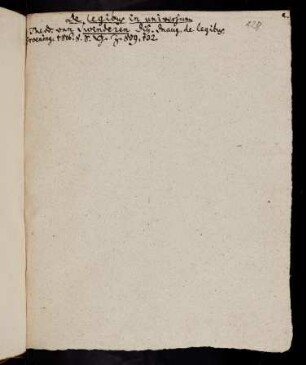 De Legibus in universum
Theod. van Swinderen Diss. Inaug. de legibus
Groning. 1806. 8. V. G. p. 509, 732.